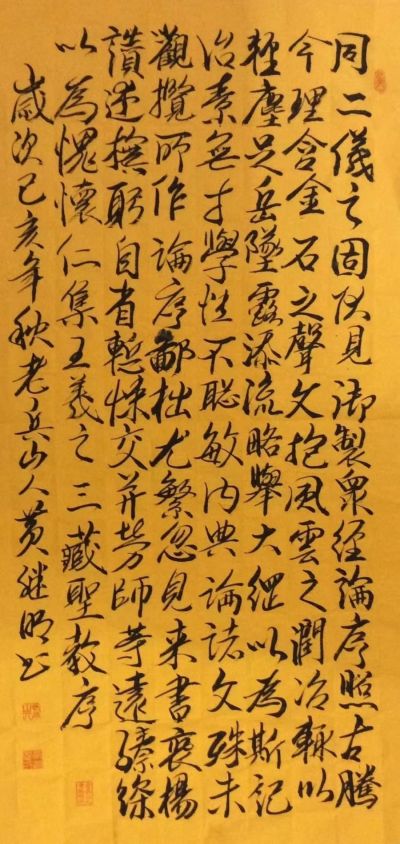 同二儀之固伏見御製眾經論序照古騰
今理含金石之聲文抱風雲之潤治輒以
輕塵足岳墜露添流略舉大綱以為斯記
治素無才學性不聰敏內典論諸文殊未
觀攬所作論序鄙拙尤繁忽見来書褒楊
讚述撫躬自省慙悚交并勞師等遠臻深
以為愧懷仁集王羲之三藏聖教序
歲次己亥年秋老兵山人黃繼明书